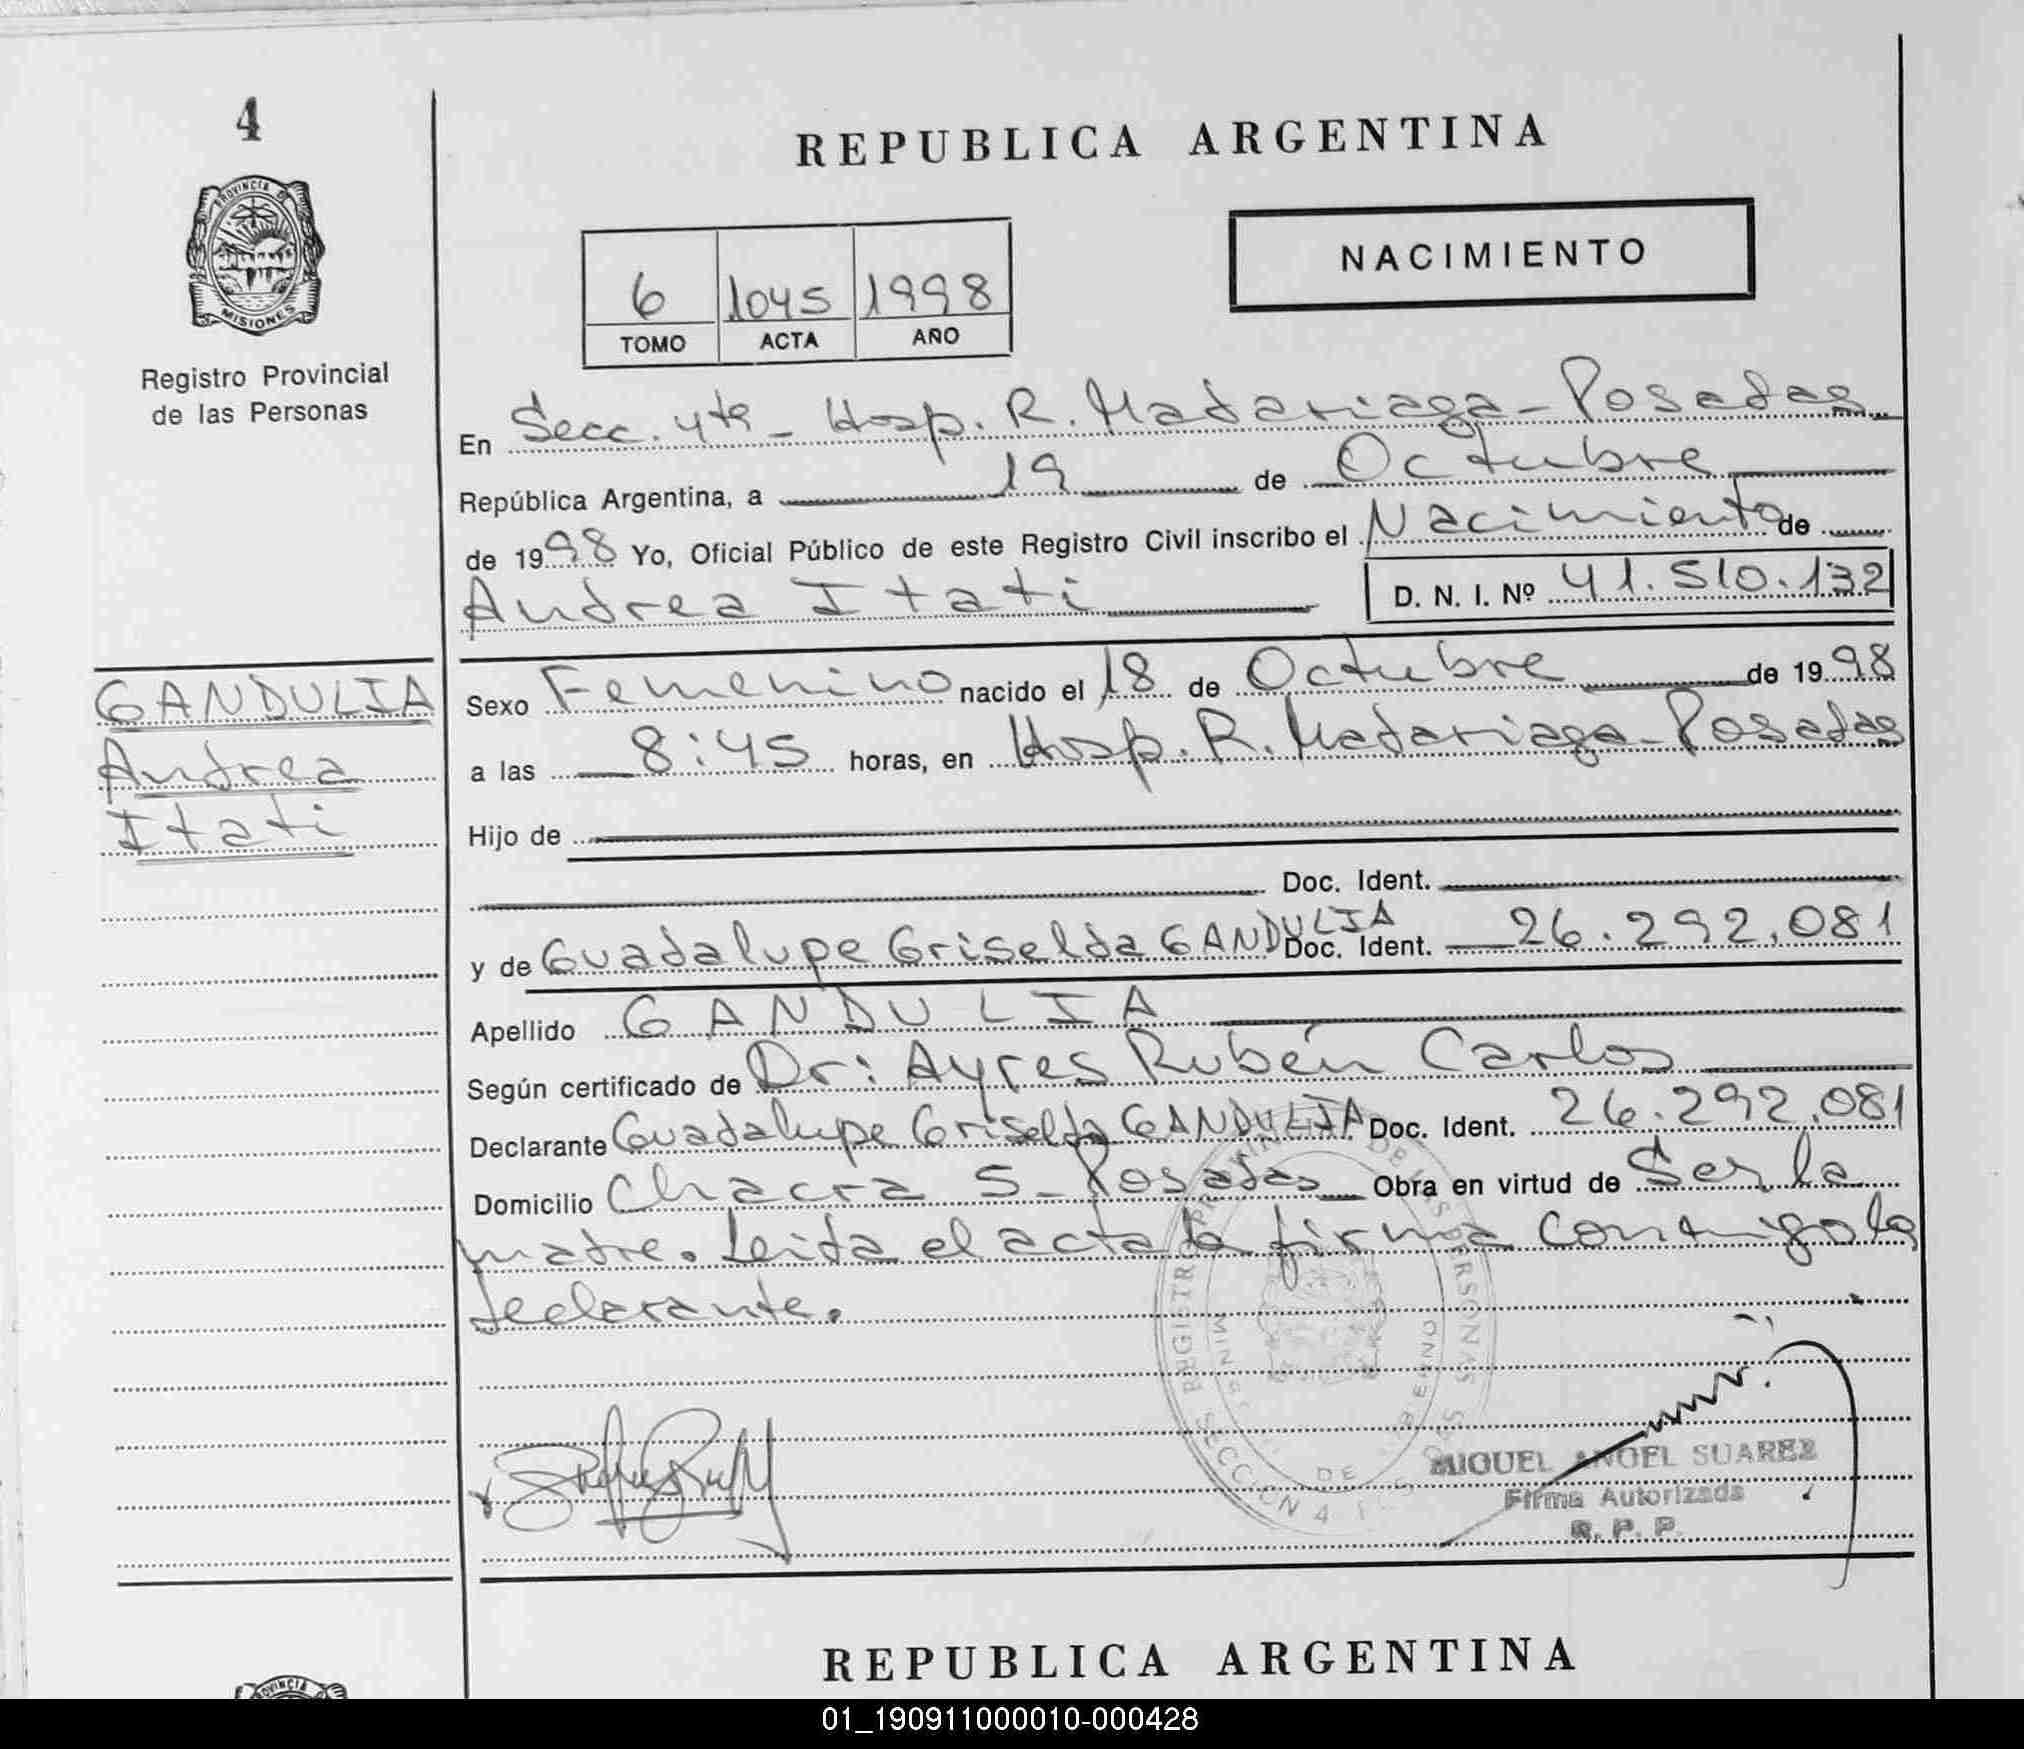 4
PROVINCIA DE
MISIONES
Registro Provincial
de las Personas
GANDULIA
Andrea
Itati
REPUBLICA ARGENTINA
6 1045 1998
TOMO ACTA AÑO
NACIMIENTO
En Secc. 4ta - Hosp. R. Madariaga - Posadas
República Argentina, a 19 de Octubre
de 1998 Yo, Oficial Público de este Registro Civil inscribo el Nacimiento de
Andrea Itati D. N. I. Nº 41.510.132
Sexo Femenino nacido el 18 de Octubre de 1998
a las 8:45 horas, en Hosp. R. Madariaga - Posadas
Hijo de
Doc. Ident.
y de Guadalupe Griselda GANDULIA Doc. Ident. 26.292.081
Apellido GANDULIA
Según certificado de Dr: Ayres Rubén Carlos
Declarante Guadalupe Griselda GANDULIA Doc. Ident. 26.292.081
Domicilio Chacra 5 - Posadas Obra en virtud de Ser la
madre. Leida el acta la firma conmigo la
declarante.
MIGUEL ANGEL SUAREZ
Firma Autorizada
R. P. P.
REPUBLICA ARGENTINA
PROVINCIA
01_190911000010-000428